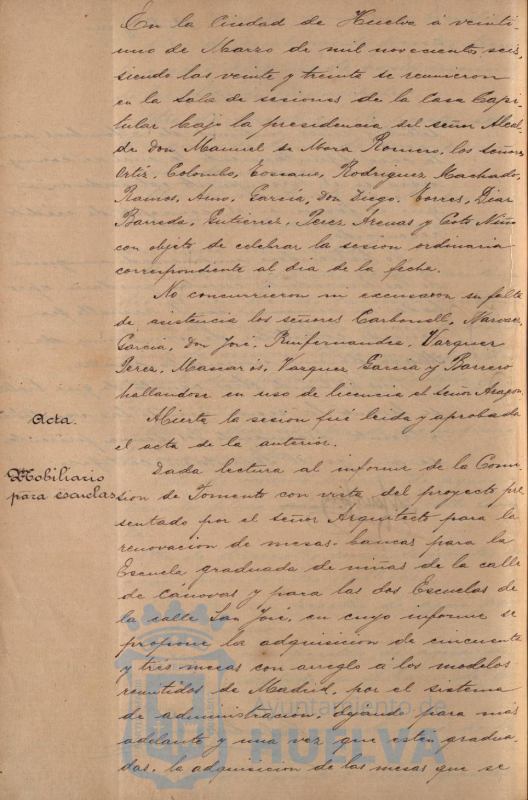 En la Ciudad de Huelva á veinti
uno de Marzo de mil novecientos seis,
siendo las veinte y treinta se reunieron
en la Sala de sesiones de la Casa Capi-
tular bajo la presidencia del señor Alcal-
de Don Manuel de Mora Romero, los señores
Ortiz, Colombo, Toscano, Rodriguez Machado,
Ramos, Amo, García, Don Diego, Torres, Diaz
Barreda, Gutierrez, Perez, Arenas y Coto Niño
con objeto de celebrar la sesion ordinaria
correspondiente al dia de la fecha.
No concurrieron ni excusaron su falta
de asistencia los señores Carbonell, Narvaez,
García, Don José, Ruifernandez, Vazquez
Perez, Mascarós, Vazquez García y Barrero
hallandose en uso de licencia el señor Aragon.
Acta.
Abierta la sesion fué leida y aprobada
el acta de la anterior.
Mobiliario
para escuelas
Dada lectura al informe de la Comi
sion de Fomento con vista del proyecto pre
sentado por el señor Arquitecto para la
renovacion de mesas-bancas para la
Escuela graduada de niñas de la calle
de Cánovas y para las dos Escuelas de
la calle San José, en cuyo informe se
propone la adquisicion de cincuenta
y tres mesas con arreglo a los modelos
remitidos de Madrid, por el sistema
de administracion, dejando para más
adelante y una vez que estén gradua-
das, la adquisicion de las mesas que se
Ayuntamiento de
HUELVA